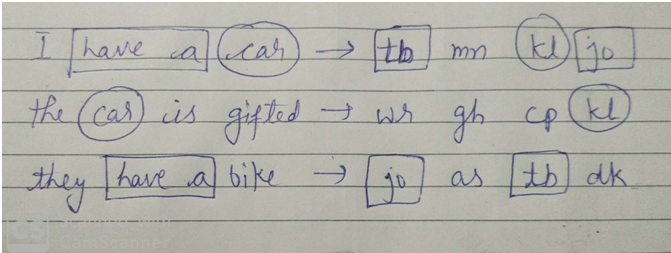 I have a car → tb mn kl jo
the car is gifted → wr gh cp kl
they have a bike → jo as tb dk
CS Scanned with
CamScanner